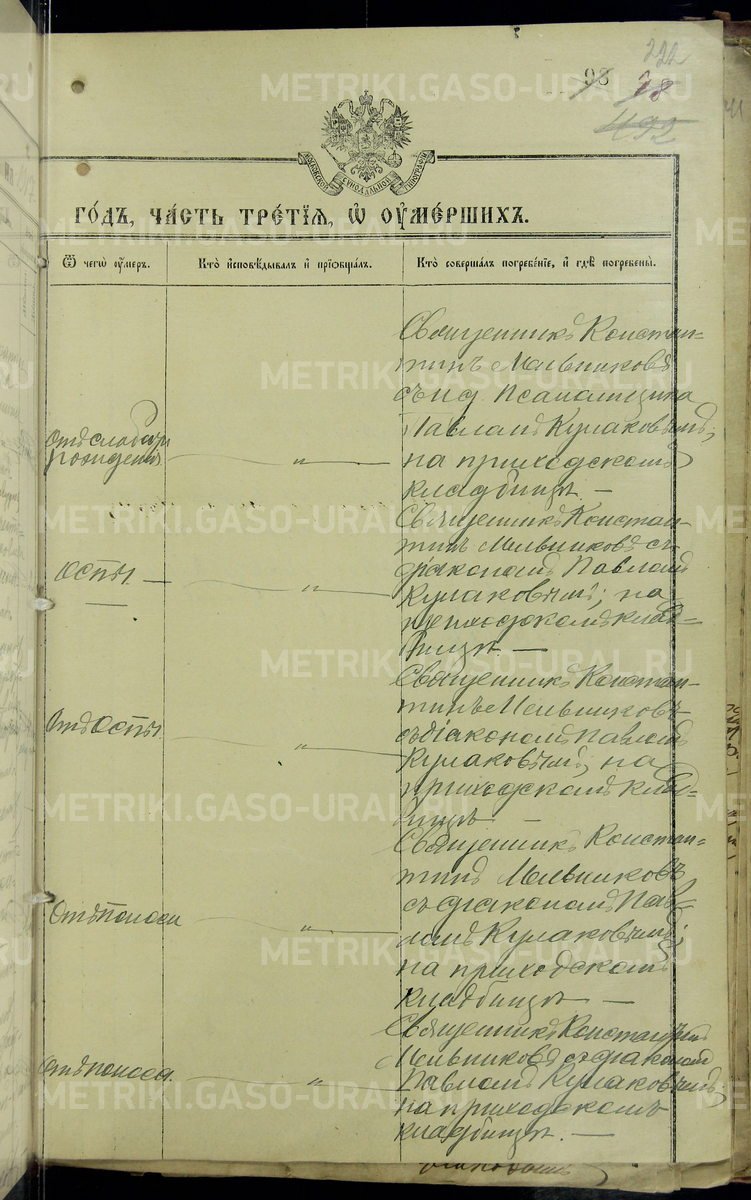 222
98 98
492
МОСКОВСКОЙ СИНОДАЛЬНОЙ ТИПОГРАФІИ
го́дъ, ча́сть тре́тїѧ, ѡ҆ оу҆ме́ршихъ.
Ѿ чегѡ̀ оу҆́меръ.
Кто̀ и҆сповѣ́дывалъ и҆ прїѻбща́лъ.
Кто̀ соверша́лъ погребе́нїе, и҆ гдѣ̀ погребены̀.
Отъ слабости
рожденія
"
Священникъ Констан=
тинъ Мельниковъ
съ и.д. Псаломщика
Павломъ Кулаковымъ;
на приходскомъ
кладбищѣ. —
Оспы. —
"
Священникъ Констан-
тинъ Мельниковъ съ
діакономъ Павломъ
Кулаковымъ; на
приходскомъ клад=
бищѣ. —
Отъ Оспы.
"
Священникъ Констан-
тинъ Мельниковъ
съ діакономъ Павломъ
Кулаковымъ; на
приходскомъ клад=
бищѣ —
Отъ поноса
"
Священникъ Констан=
тинъ Мельниковъ
съ діакономъ Пав=
ломъ Кулаковымъ;
на приходскомъ
кладбищѣ —
Отъ поноса.
"
Священникъ Константинъ
Мельниковъ съ діакономъ
Павломъ Кулаковымъ;
на приходскомъ
кладбищѣ. —
METRIKI.GASO-URAL.RU